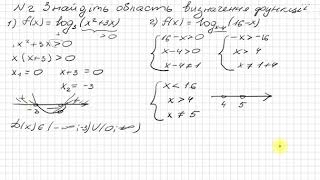 №2 Знайдіть область визначення функції
1) f(x) = log₃(x²+3x)
>0
x²+3x>0
x(x+3)>0
x₁=0 x+3=0
x₂=-3
D(x)∈(-∞;-3)∪(0;∞)
2) f(x) = logₓ₋₄(16-x)
16-x>0
x-4>0
x-4≠1
-x>-16
x≠1+4
x<16
x>4
x≠5
4 5